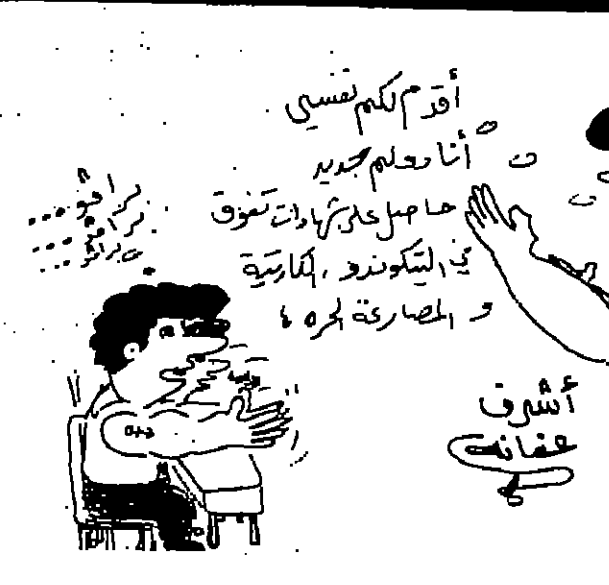 أقدم لكم نفسي
أنا معلم جديد
حاصل على شهادات تفوق
في التيكوندو، الكاراتية
و المصارعة الحره
برافو...
برافو...
برافو...
أشرف